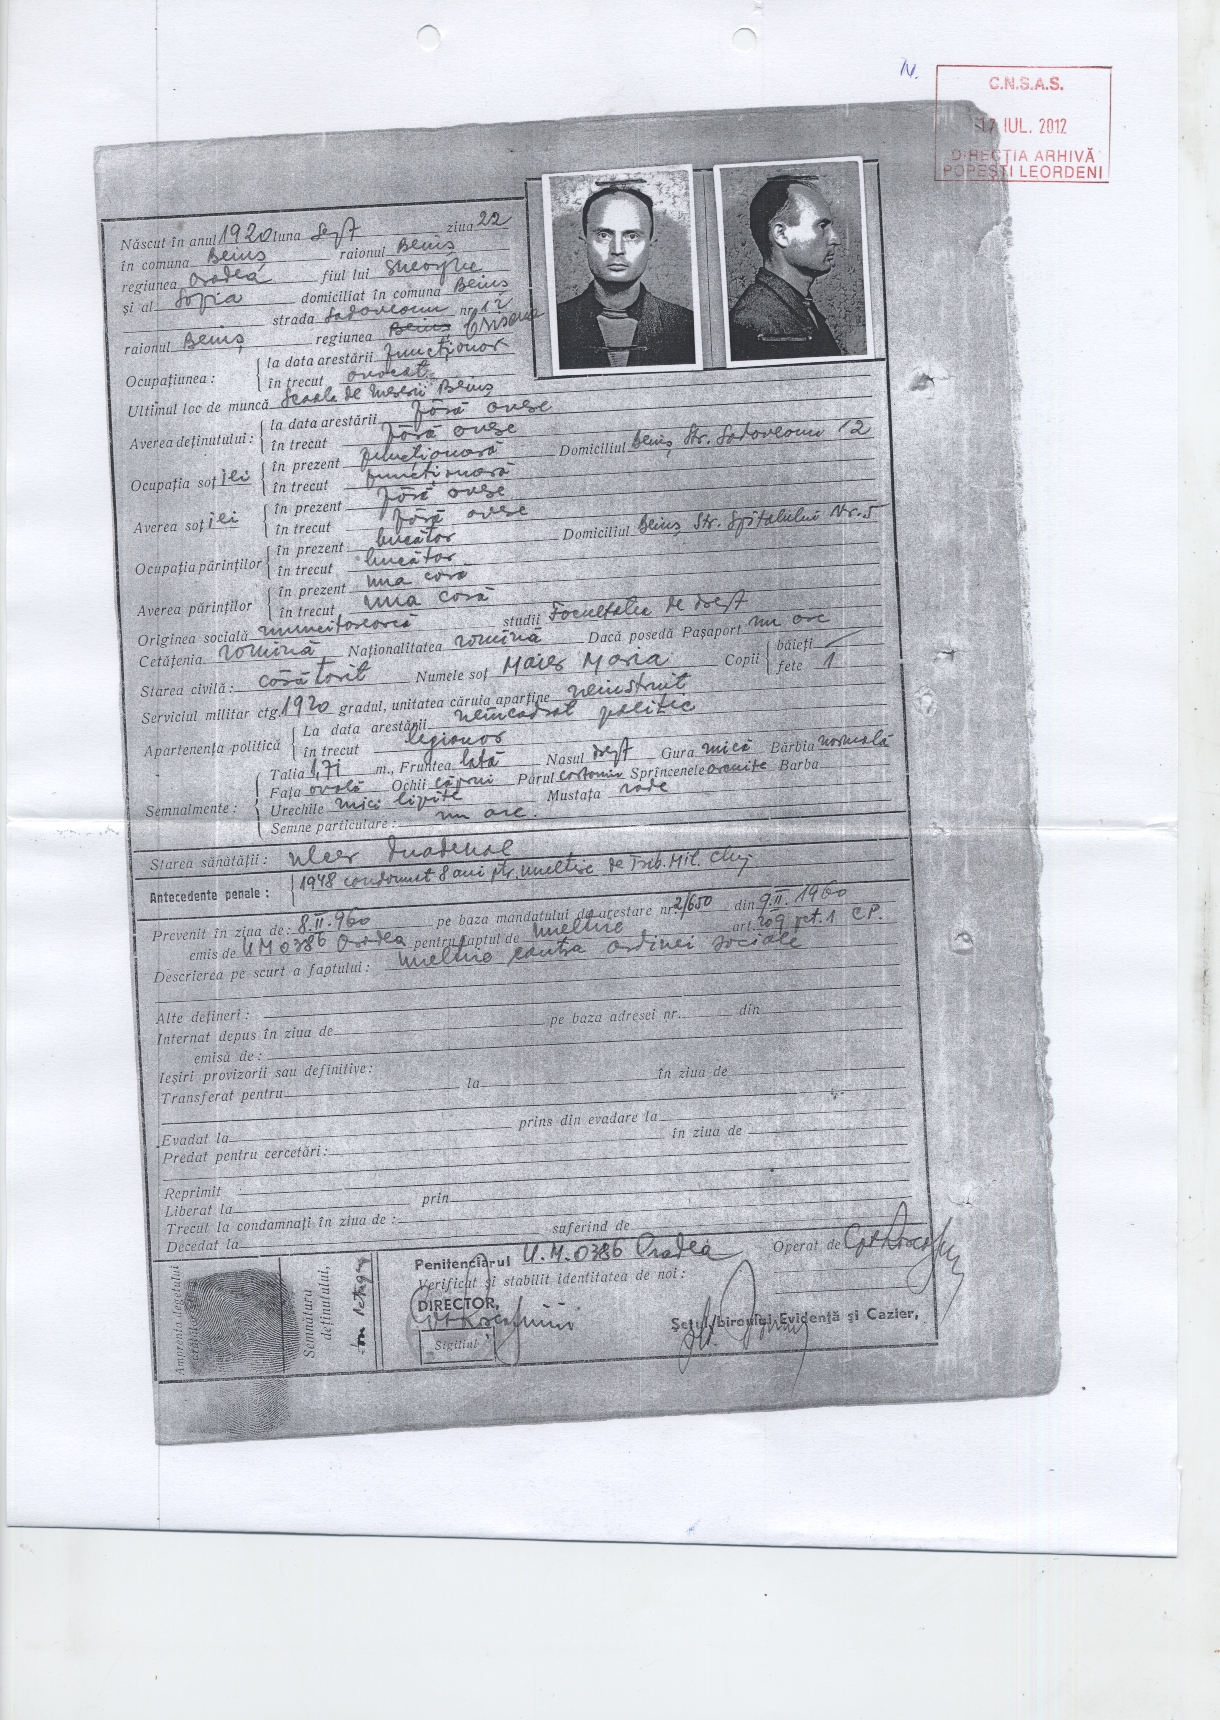 IV.
C.N.S.A.S.
17 IUL. 2012
DIRECŢIA ARHIVĂ
POPEŞTI LEORDENI
Născut în anul 1920 luna Sept ziua 22
în comuna Beiuş raionul Beiuş
regiunea Oradea fiul lui Gheorghe
şi al Sofia domiciliat în comuna Beiuş
strada Sadoveanu nr. 12
raionul Beiuş regiunea Beiuş Crisana
Ocupaţiunea: la data arestării funcţionar
în trecut avocat
Ultimul loc de muncă Scoala de Meserii Beiuş
Averea deţinutului: la data arestării fără avere
în trecut fără avere
Ocupaţia soţiei în prezent funcţionară Domiciliul Beiuş Str. Sadoveanu 12
în trecut funcţionară
Averea soţiei în prezent fără avere
în trecut fără avere
Ocupaţia părinţilor în prezent bucătar Domiciliul Beiuş Str. Spitalului Nr. 5
în trecut bucătar
Averea părinţilor în prezent una casă
în trecut una casă
Originea socială muncitorească studii Facultatea de drept
Cetăţenia romînă Naţionalitatea romînă Dacă posedă Paşaport nu are
Starea civilă: căsătorit Numele soţ Maier Maria Copii băieţi —
fete 1
Serviciul militar ctg. 1920 gradul, unitatea căruia aparţine neinstruit
Apartenenţa politică La data arestării neîncadrat politic
în trecut legionar
Semnalmente: Talia 1,71 m., Fruntea lată Nasul drept Gura mică Bărbia normală
Faţa ovală Ochii căprui Părul castaniu Sprîncenele arcuite Barba
Urechile mici lipite Mustaţa rade
Semne particulare: nu are.
Starea sănătăţii: ulcer duadenal
Antecedente penale: 1948 condamnat 8 ani ptr. uneltire de Trib. Mil. Cluj
Prevenit în ziua de: 8.II.960 pe baza mandatului de arestare nr. 2/650 din 9.II.1960
emis de U.M.0386 Oradea pentru faptul de uneltire art. 209 pct. 1 C.P.
Descrierea pe scurt a faptului: uneltire contra ordinei sociale
Alte deţineri:
Internat depus în ziua de pe baza adresei nr. din
emisă de:
Ieşiri provizorii sau definitive:
Transferat pentru la în ziua de
Evadat la prins din evadare la
Predat pentru cercetări: în ziua de
Reprimit
Liberat la prin
Trecut la condamnaţi în ziua de:
Decedat la suferind de
Amprenta degetului
Semnătura deţinutului,
Penitenciarul U.M.0386 Oradea Operat de
Verificat şi stabilit identitatea de noi:
DIRECTOR,
Sigiliul
Şeful biroului Evidenţă şi Cazier,